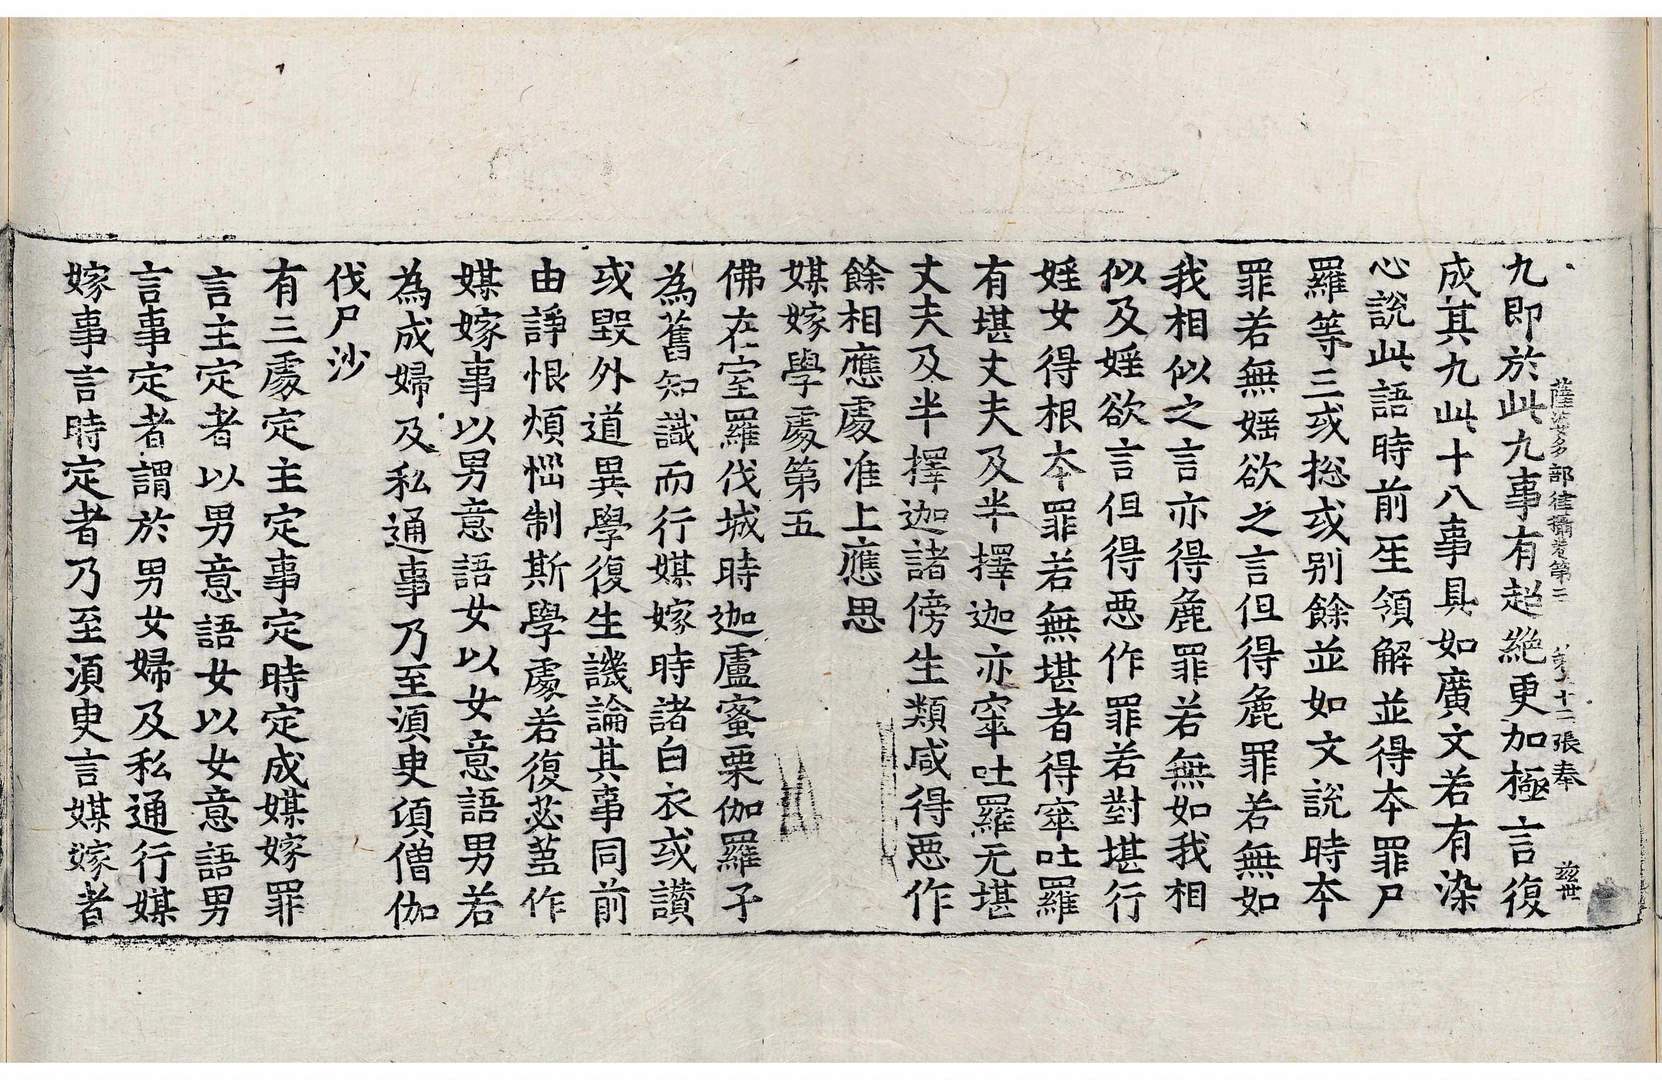 薩婆多部律攝卷第三 第十二張 奉
九即於此九事有超絶更加極言復
成其九此十八事具如廣文若有染
心說此語時前生領解並得本罪尸
羅等三或捴或別餘並如文說時本
罪若無婬欲之言但得麁罪若無如
我相似之言亦得麁罪若無如我相
似及婬欲言但得惡作罪若對堪行
婬女得根本罪若無堪者得窣吐羅
有堪丈夫及半擇迦亦窣吐羅无堪
丈夫及半擇迦諸傍生類咸得惡作
餘相應處准上應思
媒嫁學處第五
佛在室羅伐城時迦盧蜜栗伽羅子
為舊知識而行媒嫁時諸白衣或讃
或毀外道異學復生譏論其事同前
由諍恨煩惱制斯學處若復苾蒭作
媒嫁事以男意語女以女意語男若
為成婦及私通事乃至湏臾頃僧伽
伐尸沙
有三處定主定事定時定成媒嫁罪
言主定者以男意語女以女意語男
言事定者謂於男女婦及私通行媒
嫁事言時定者乃至湏臾言媒嫁者